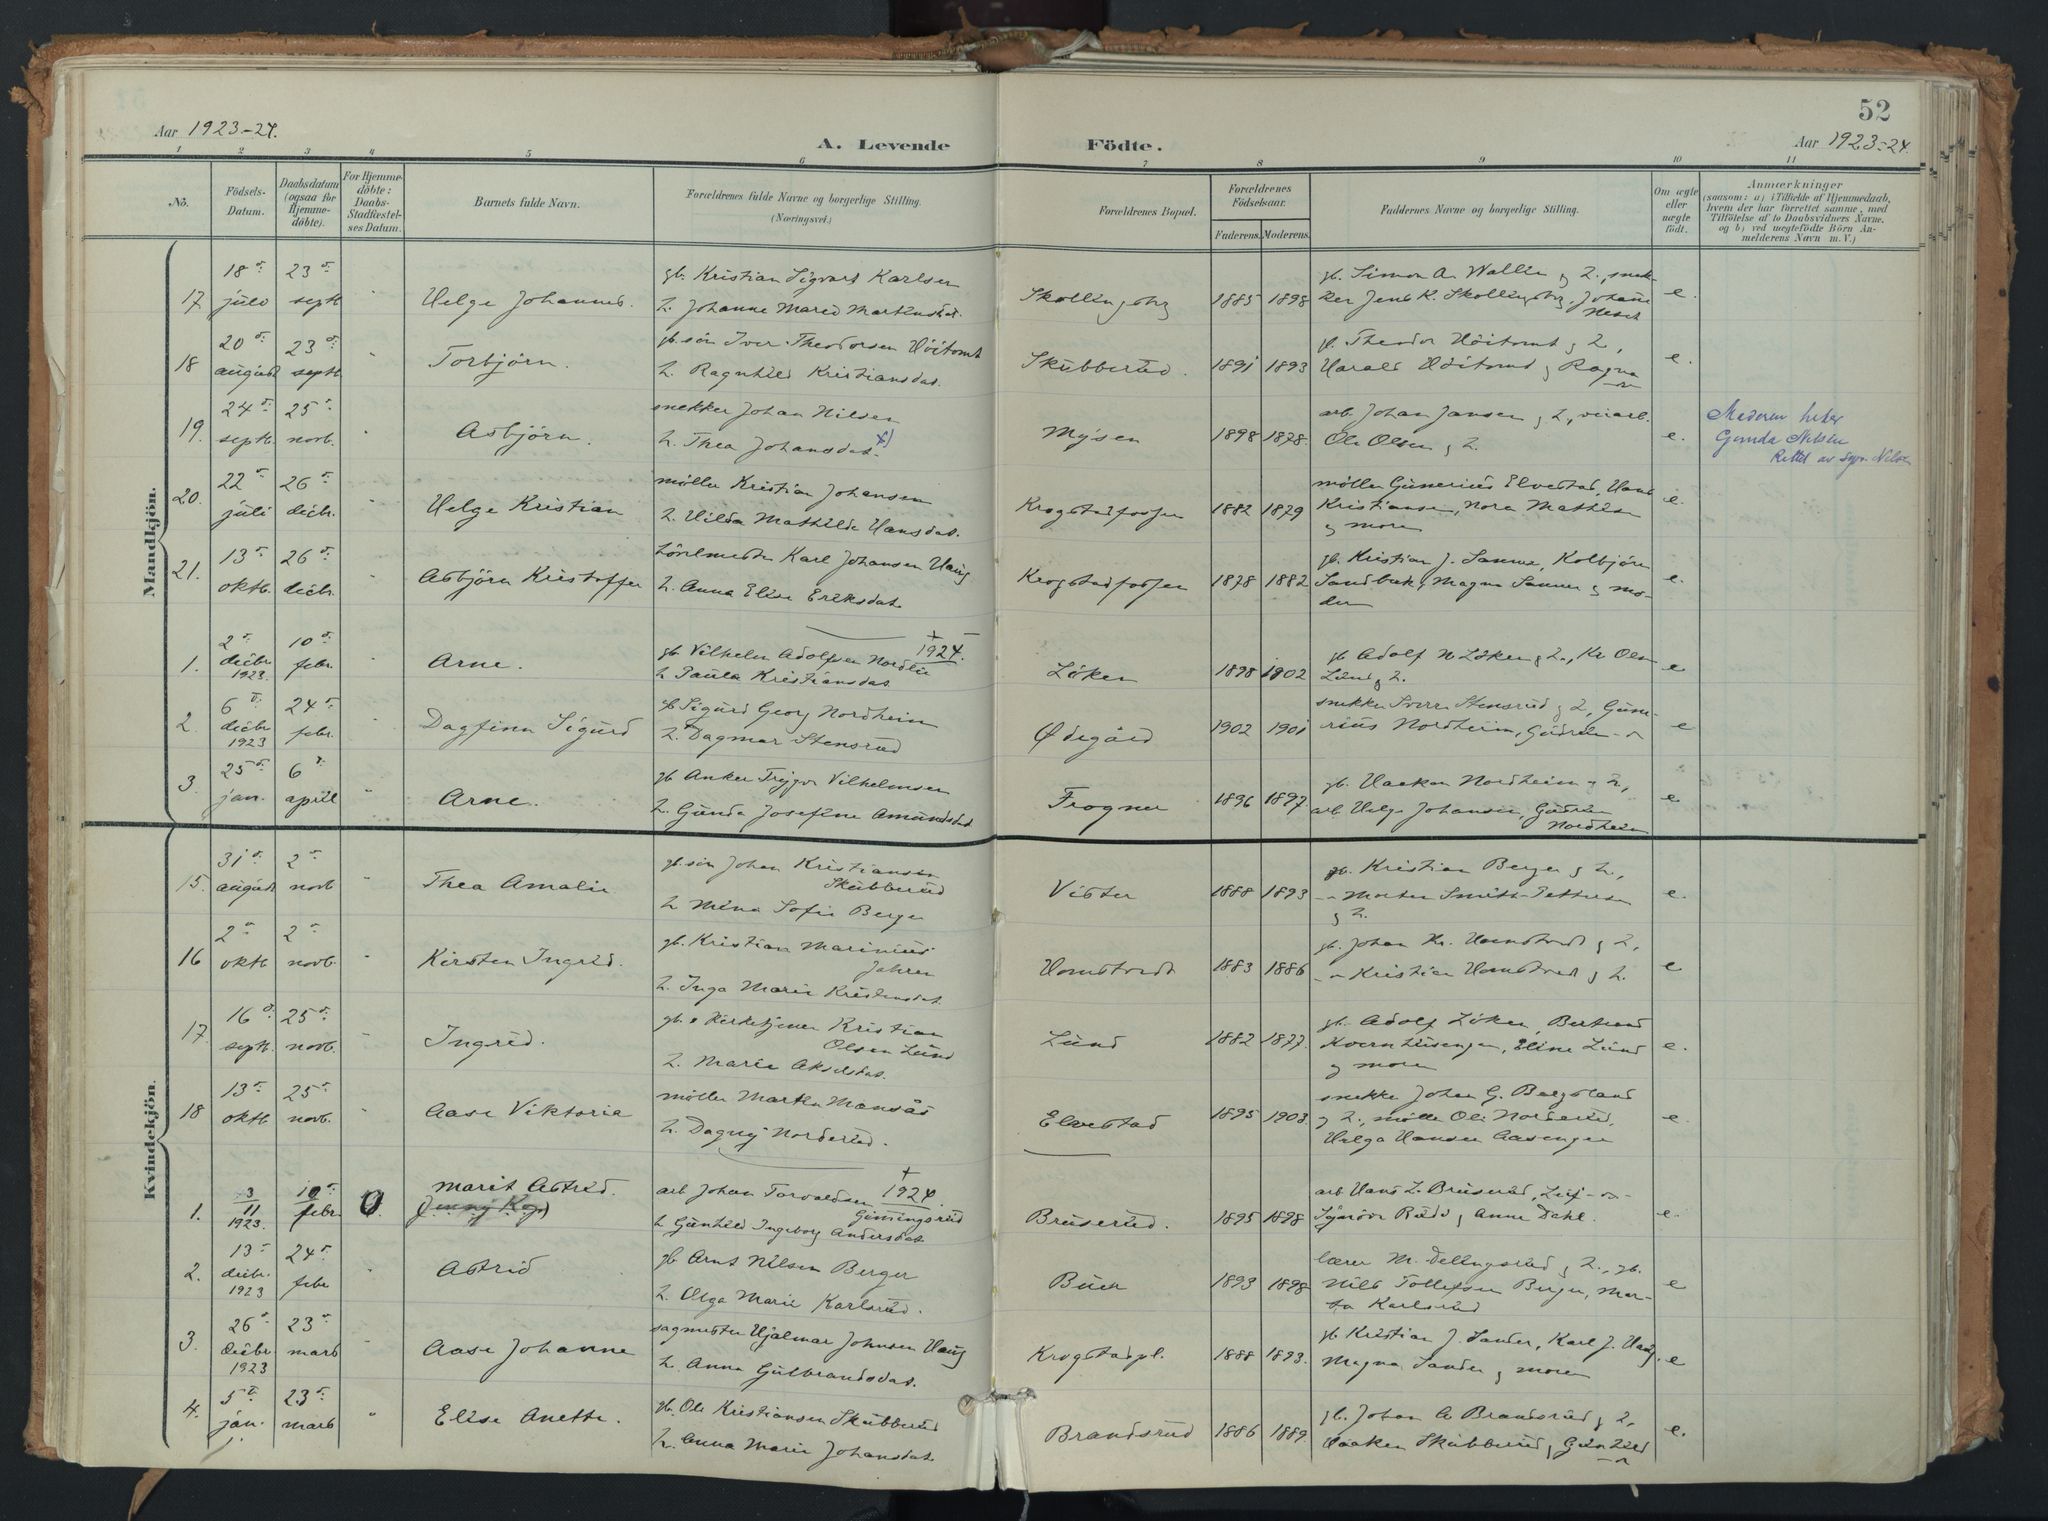 52
Aar 1923-24.
A. Levende
Födte.
Aar 1923-24.
1 2 3 4 5 6 7 8 9 10 11
Nö.
Födsels-
Datum.
Daabsdatum
(ogsaa for
Hjemme-
döbte).
For Hjemme-
döbte:
Daabs-
Stadfæstel-
ses Datum.
Barnets fulde Navn.
Forældrenes fulde Navne og borgerlige Stilling.
(Næringsvei.)
Forældrenes Bopæl.
Forældrenes
Födselsaar.
Faderens. Moderens.
Faddernes Navne og borgerlige Stilling.
Om ægte
eller
uægte
födt.
Anmærkninger
(saasom: a) i Tilfælde af Hjemmedaab,
hvem der har forrettet samme, med
Tilföielse af to Daabsvidners Navne,
og b) ved uægtefödte Börn An-
melderens Navn m. V.)
Mandkjön.
17 18 juli 23 sept. Helge Johannes.
gb. Kristian Sigvart Karlsen
h. Johanne Marie Martinsdat.
1885 1898
gb. Simon A. Wallin g h., snek-
ker Jens K.
e.
18 20 august 23 sept. Torbjörn.
gb. sön Iver Theodorsen Höitomt
h. Ragnhild Kristiansdat.
Skubberud. 1891 1893
gb. Theodor Höitomt g h.,
Harald Höitomt g Ragna
e.
19. 24 septb. 25 novb. Asbjörn.
snekker Johan Nilsen
h. Thea Johansdat. x)
Mysen 1898 1878.
arb. Johan Jansen g h., veiarb.
Ole Olsen g h.
e.
Moderen heter
Gunda Nilsen
Rettet av
20. 22 juli 26 decbr. Helge Kristian
möller Kristian Johansen
h. Hilda Mathilde Hansdat.
Krogstadfossen 1882 1879
möller Gunerius Elvestad, Hans
Kristiansen, Nora Mathisen
g moren
e.
21. 13 oktb. 26 decbr. Asbjörn Kristoffer
Karl Johansen Haug
h. Anna Elise Eriksdat.
Krogstadfossen 1878 1882
gb. Kristian J. Sander, Kolbjörn
Sandbæk, Magna Sander g mo-
deren
e.
† 1924.
1. 2 decbr. 1923. 10 febr. Arne.
gb. Vilhelm Adolfsen Nordlie
h. Paula Kristiansdat.
Löken 1898 1902
gb. Adolf N. Löken g h., Kr. Olsen
Lund g h.
e
2. 6 decbr 1923 24 febr. Dagfinn Sigurd
gb Sigurd Georg Nordheim
h. Dagmar Stensrud
Ødegård 1902 1901
snekker Sverre Stensrud g h., Gune-
rius Nordheim, Gudrun
e
3. 25 jan. 6 april Arne.
gb. Anker Trygve Vilhelmsen
h. Gunda Josefine Amundsdat.
Frogner 1896 1897.
gb. Haakon Nordheim g h.,
arb. Helge Johansen, Gudrun
Nordheim
e
Kvindekjön.
15. 31 august 2 novb Thea Amalie
gb. sön Johan Kristiansen
Skubberud
h Mina Sofie Berger
Vister 1888 1893
gb. Kristian Berger g h.,
Morten Smith-Pettersen
g h.
e.
16 2 oktb 2 novb. Kirsten Ingrid.
gb. Kristian Marinius
Jahren
h. Inga Marie Kristensdat.
Homstvedt 1883 1886
gb. Johan Kr. Homstvedt g h.
Kristian Homstvedt g h.
e
17. 16 septb. 25 novb. Ingrid.
gb. g kirketjener Kristian
Olsen Lund
h. Marie Akselsdat.
Lund 1882 1877.
gb. Adolf Löken, Bertrand
Kvernhusengen, Eline Lund
g moren
e.
18 13 oktb 25 novb. Aase Viktoria
möller Martin Monsås
h. Dagny Norderud.
Elvestad 1895 1903.
snekker Johan G. Bergsland
g h., möller Ole Norderud,
Helga Hansen Aasengen
e.
† 1924.
1. 3/11 1923. 10 febr. 0 Marit Astrid.
arb Johan Torvaldsen
Gimingsrud
h Gunhild Ingeborg Andersdat.
Bruserud. 1895 1898
arb Hans L. Bruserud, Leif
Synöve Rud g Anne Dahl.
e.
2. 13 decbr. 1923 24 febr Astrid
gb Arnt Nilsen Berger
h. Olga Marie Karlsrud.
Buer 1893 1898
lærer M. Dellingsrud g h., gb.
Nils Tollefsen Berger, Mar-
ta Karlsrud
e
3. 26 decbr 1923 23 mars Aase Johanne
sagmester Hjalmar Johnsen Haug
h. Anna Gulbrandsdat.
Krogstadpl. 1888 1893.
gb Kristian J. Sander, Karl J. Haug,
Magna Sander g moren
e
4. 5 jan. 23 mars Elise Anette.
gb. Ole Kristiansen Skubberud
h. Anna Marie Johansdat.
Brandsrud 1886 1889.
gb. Johan A Brandsrud g h.,
Haakon Skubberud g Gunhild
e.